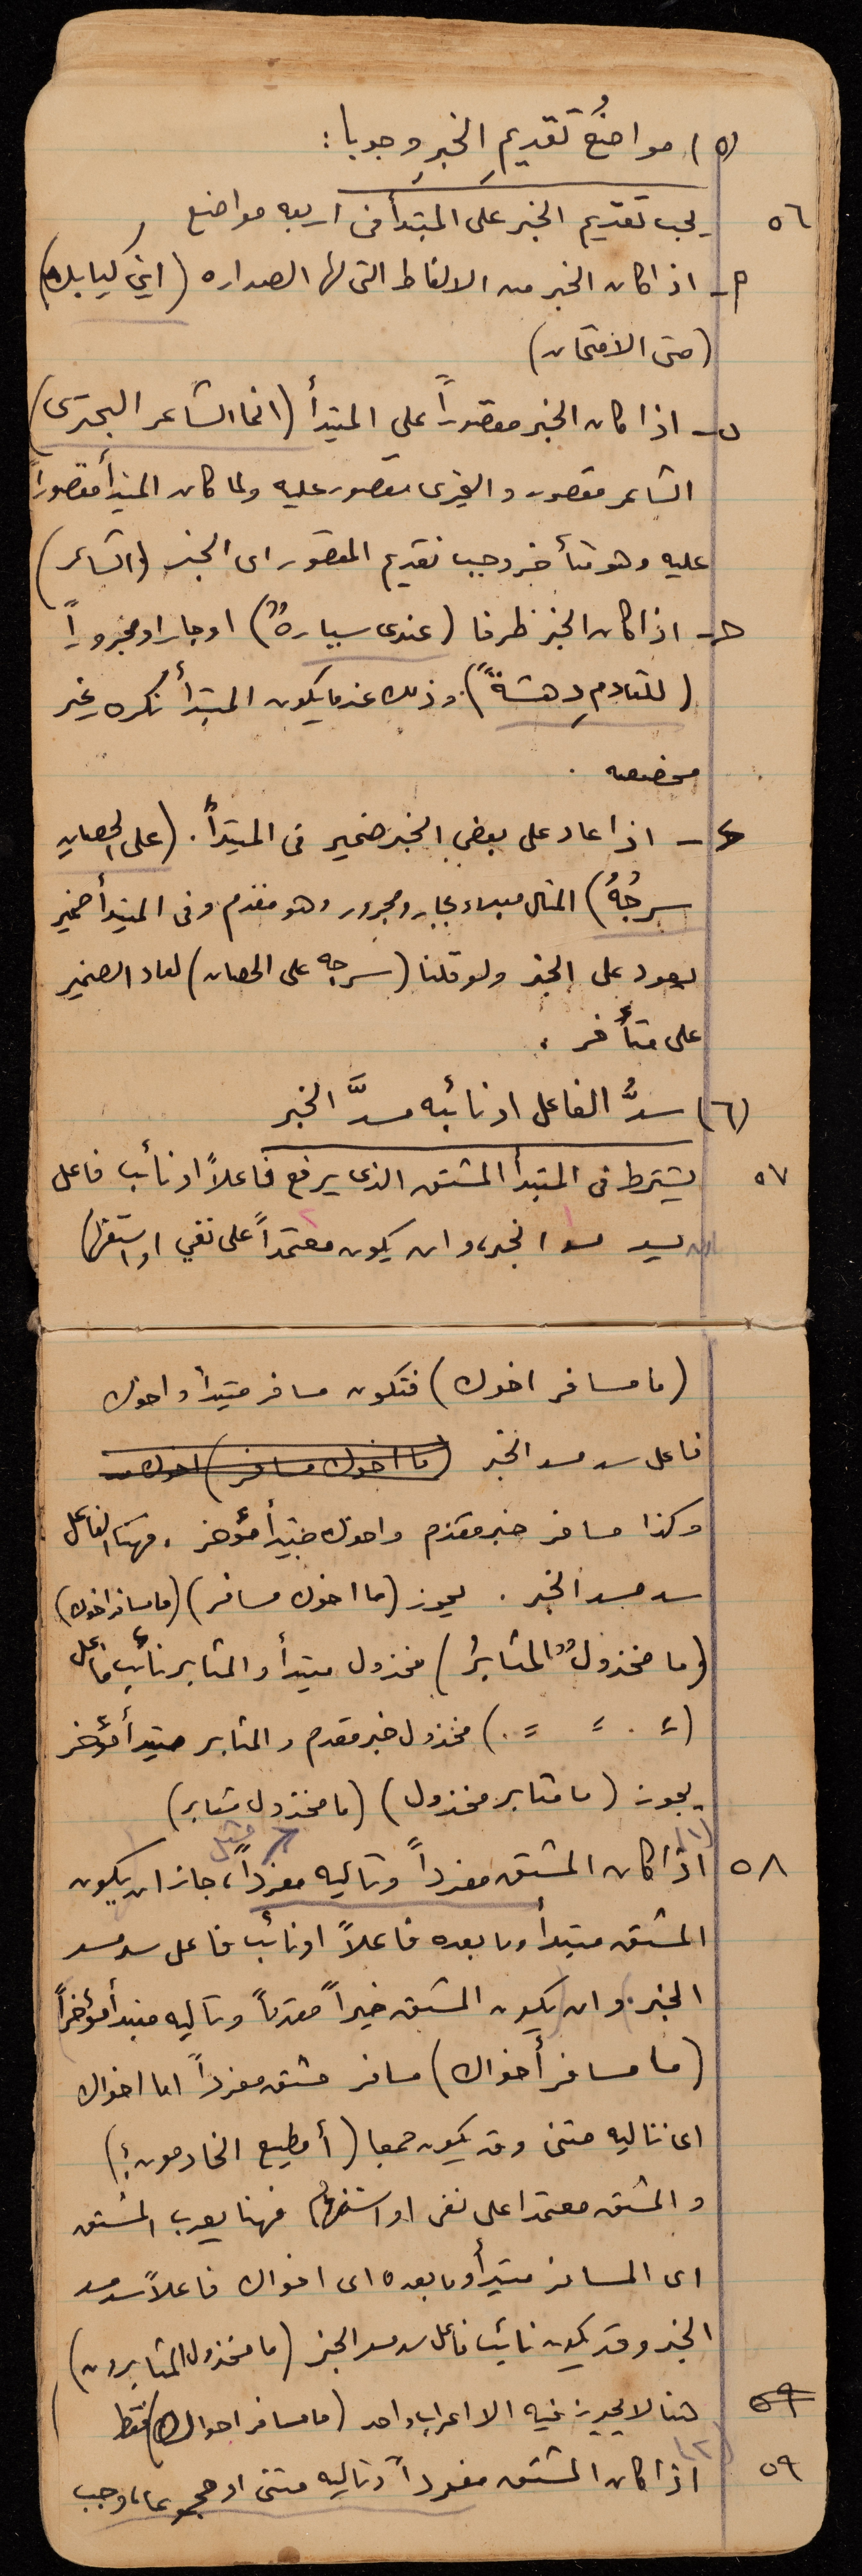 (٥) مواضعُ تقديمِ الخبرِ وجوبا :
٥٦ يجب تقديم الخبر على المبتدأ فى اربعه مواضع
أ - اذا كان الخبر من الالفاظ التى لها الصداره (اين كتابك)
(متى الامتحان)
ب - اذا كان الخبر مقصوراً على المبتدأ (انما الشاعر البحترى)
الشاعر مقصور والبحترى مقصور عليه ولما كان المبتدأ مقصوراً
عليه وهو متأخر وجب تقديم المقصور اى الخبر (الشاعر)
حـ - اذا كان الخبر ظرفا (عندى سيارهٌ) او جارا ومجروراً
(للقادمِ دهشةٌ) وذلك عندما يكون المبتدأ نكره غير
مخصصه .
ء - اذا عاد على بعض الخبر ضمير فى المبتدأ . (على الحصانِ
سرجُهُ) المثال مبدوء بجار ومجرور وهو مقدم وفى المبتدأ ضمير
يعود على الخبر ولو قلنا (سرجه على الحصان) لعاد الضمير
على متأخر .
(٦) سدُّ الفاعل او نائبه مسدَّ الخبر
٥٧ يشترط فى المبتدأ المشتق الذى يرفع فاعلاً او نائب فاعل
ان يسد مسد الخبر، وان يكون معتمداً على نفي او استفهام
(ما مسافر اخوك) فتكون مسافر مبتدأ واخوك
فاعل سد مسد الخبر (ما اخوك مسافر) اخوك
وكذا مسافر خبر مقدم واخوك مبتدأ مؤخر . فهنا الفاعل
سد مسد الخبر . يجوز (ما اخوك مسافر) (ما مسافر اخوك)
(ما مخذولٌ المثابرُ) مخذول مبتدأ والمثابر نائب فاعل
(〃 . 〃 〃 .) مخذول خبر مقدم والمثابر مبتدأ مؤخر
يجوز (ما مثابر مخذول) (ما مخذول مثابر)
٥٨ (١) اذا كان المشتق مفرداً وتاليه مفرداً، جاز ان يكون
المشتق مبتدأ وما بعده فاعلاً او نائب فاعل سد مسد
الخبر. وان يكون المشتق خبراً مقدماً وتاليه مبتدأ مؤخراً
(ما مسافر أخواك) مسافر مشتق مفرداً اما اخواك
اى تاليه مثنى وقد يكون جمعا (أ مطيع الخادمون؟)
والمشتق معتمدا على نفى او استفهام فهنا يعرب المشتق
اى المسافر مبتدأ وما بعده اى اخواك فاعلاً سد مسد
الخبر وقد يكون نائب فاعل سد مسد الخبر (ما مخذول المثابرون)
٥٩ هنا لا يجوز فيه الا اعراب واحد (ما مسافر اخواك) فقط
٥٩ (٢) اذا كان المشتق مفرداً وتاليه مثنى او مجموعا، وجب